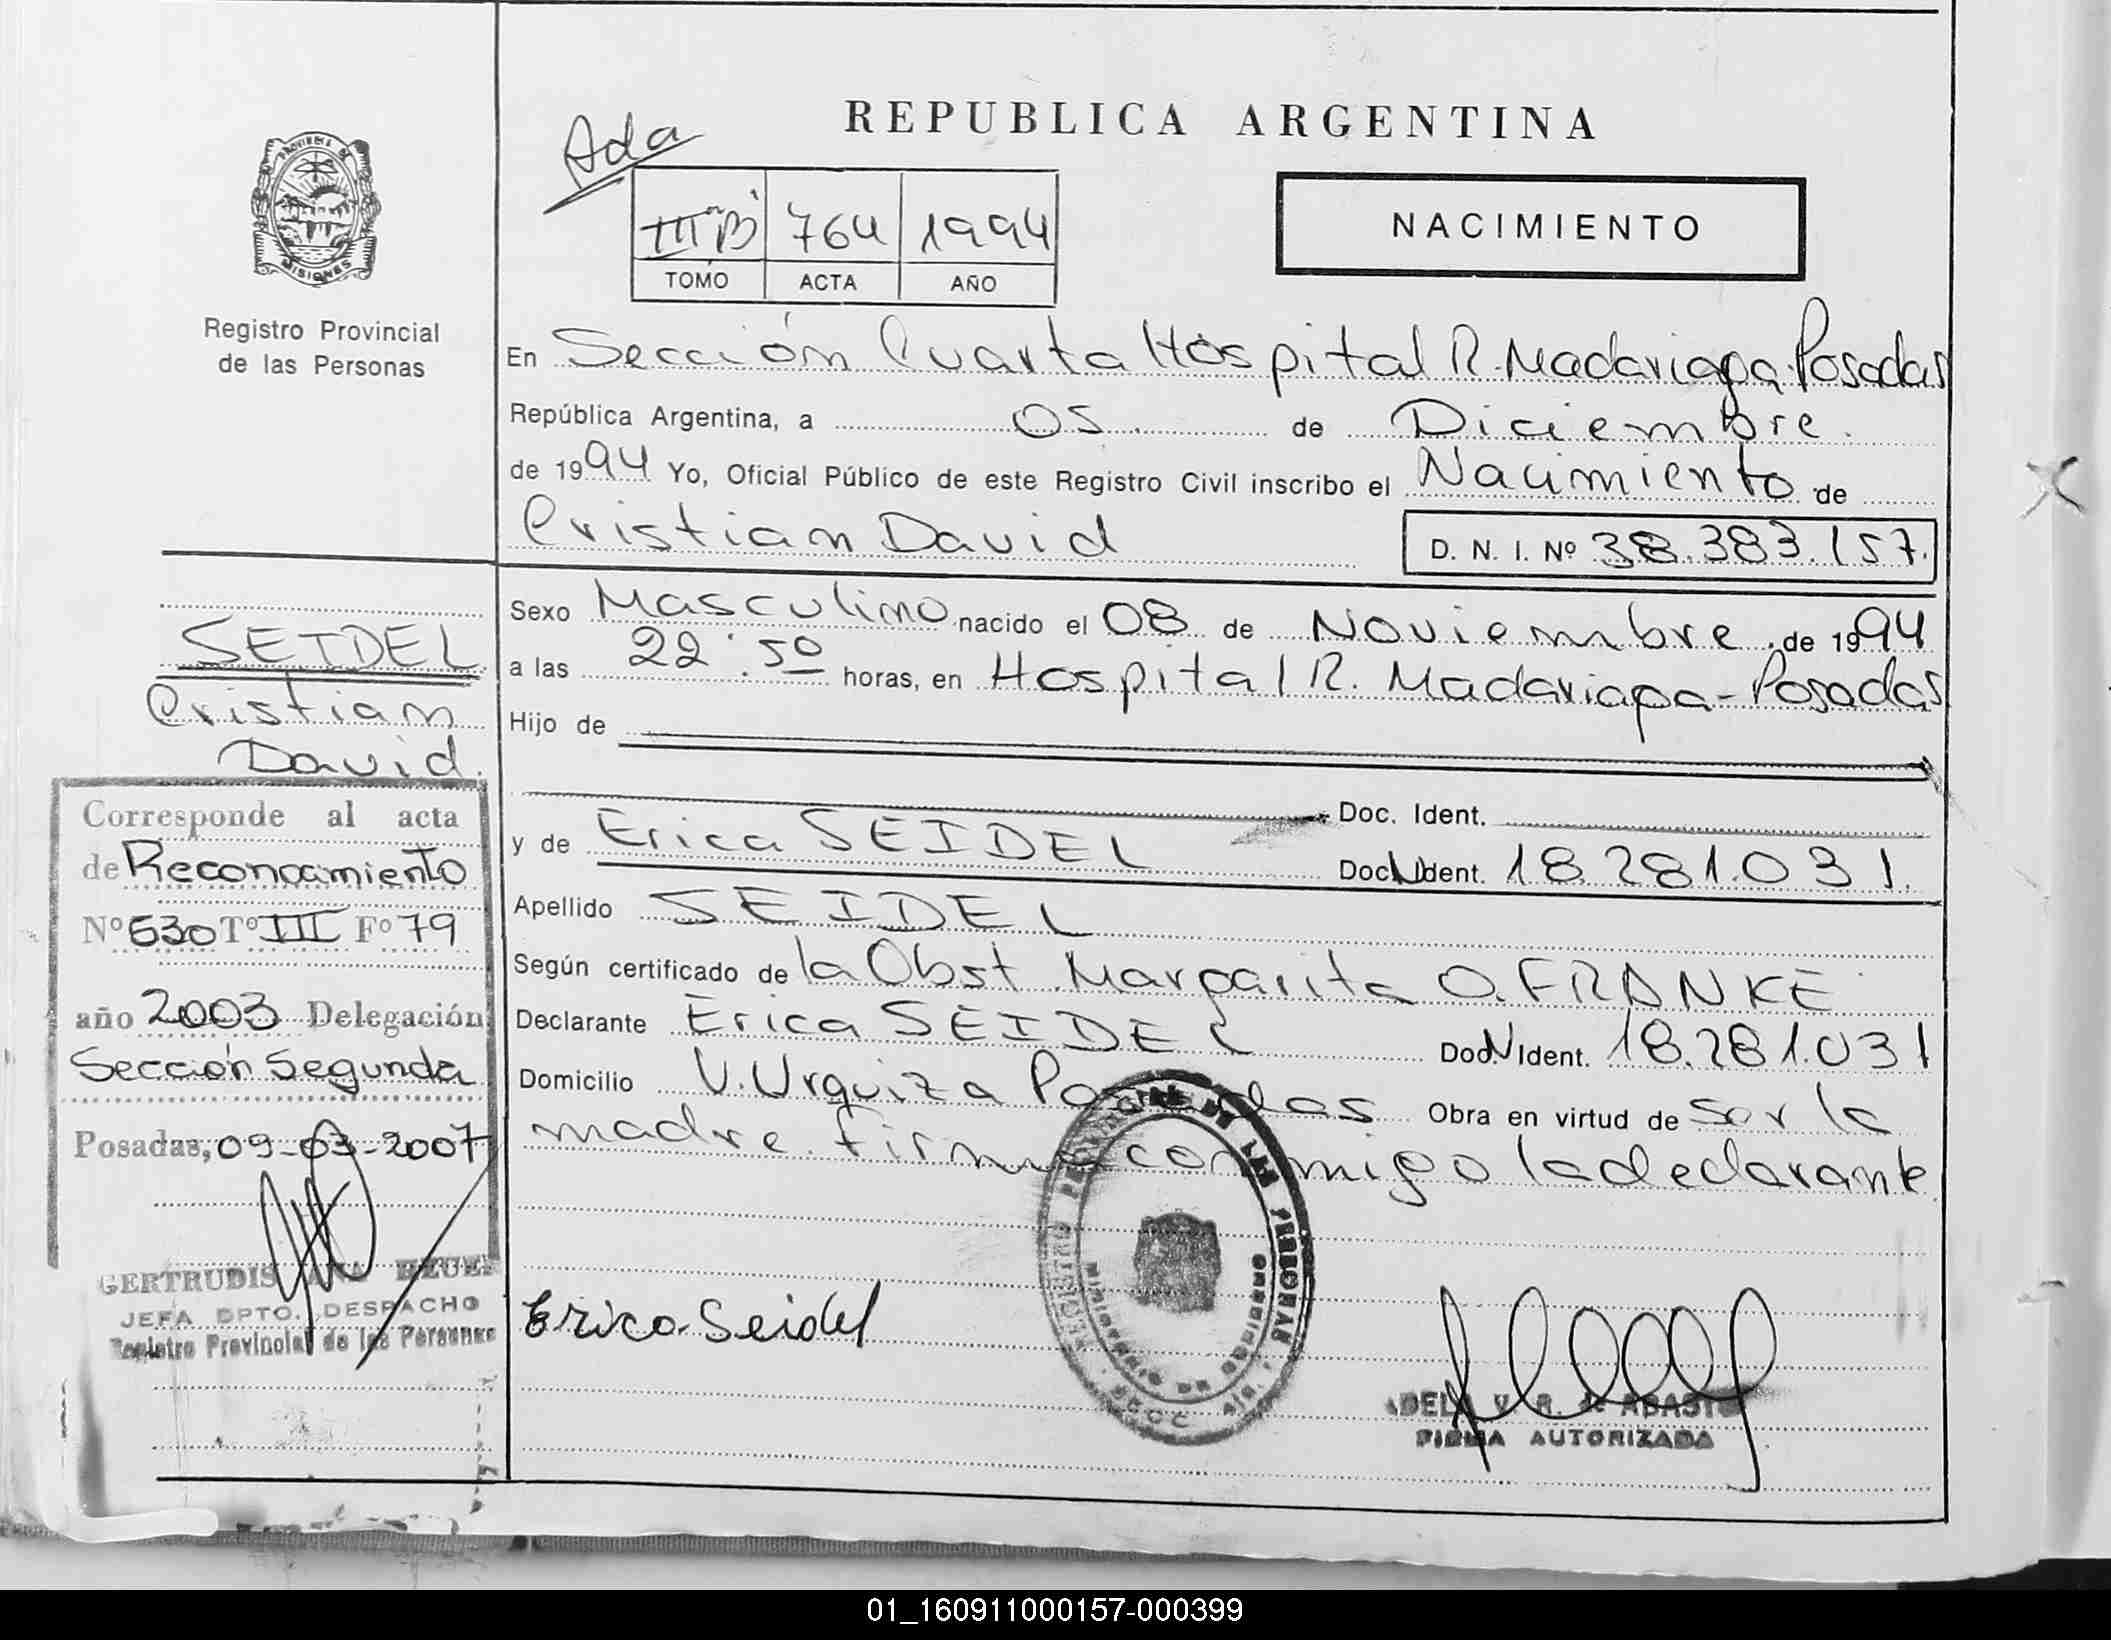 REPUBLICA ARGENTINA
Ada
III "B" 764 1994
TOMO ACTA AÑO
NACIMIENTO
PROVINCIA DE
MISIONES
Registro Provincial
de las Personas
En Sección Cuarta Hospital R. Madariaga Posadas
República Argentina, a 05 de Diciembre
de 1994 Yo, Oficial Público de este Registro Civil inscribo el Nacimiento de
Cristian David
D. N. I. Nº 38.383.157.
Sexo Masculino nacido el 08 de Noviembre de 1994
a las 22:50 horas, en Hospital R. Madariaga - Posadas
Hijo de
Doc. Ident.
y de Erica SEIDEL Doc. Ident. 18.281.031.
Apellido SEIDEL
Según certificado de la Obst. Margarita O. FRANKE
Declarante Erica SEIDEL Doc. Ident. 18.281.031
Domicilio V. Urquiza Posadas Obra en virtud de ser la
madre firma conmigo la declarante
Erica Seidel
REGISTRO PROVINCIAL DE LAS PERSONAS
MINISTERIO DE GOBIERNO
FIRMA AUTORIZADA
SEIDEL
Cristian
David.
Corresponde al acta
de Reconocimiento
Nº 530 Tº III Fº 79
año 2003 Delegación
Sección Segunda
Posadas, 09-03-2007
GERTRUDIS
JEFA DPTO. DESPACHO
Registro Provincial de las Personas
01_160911000157-000399